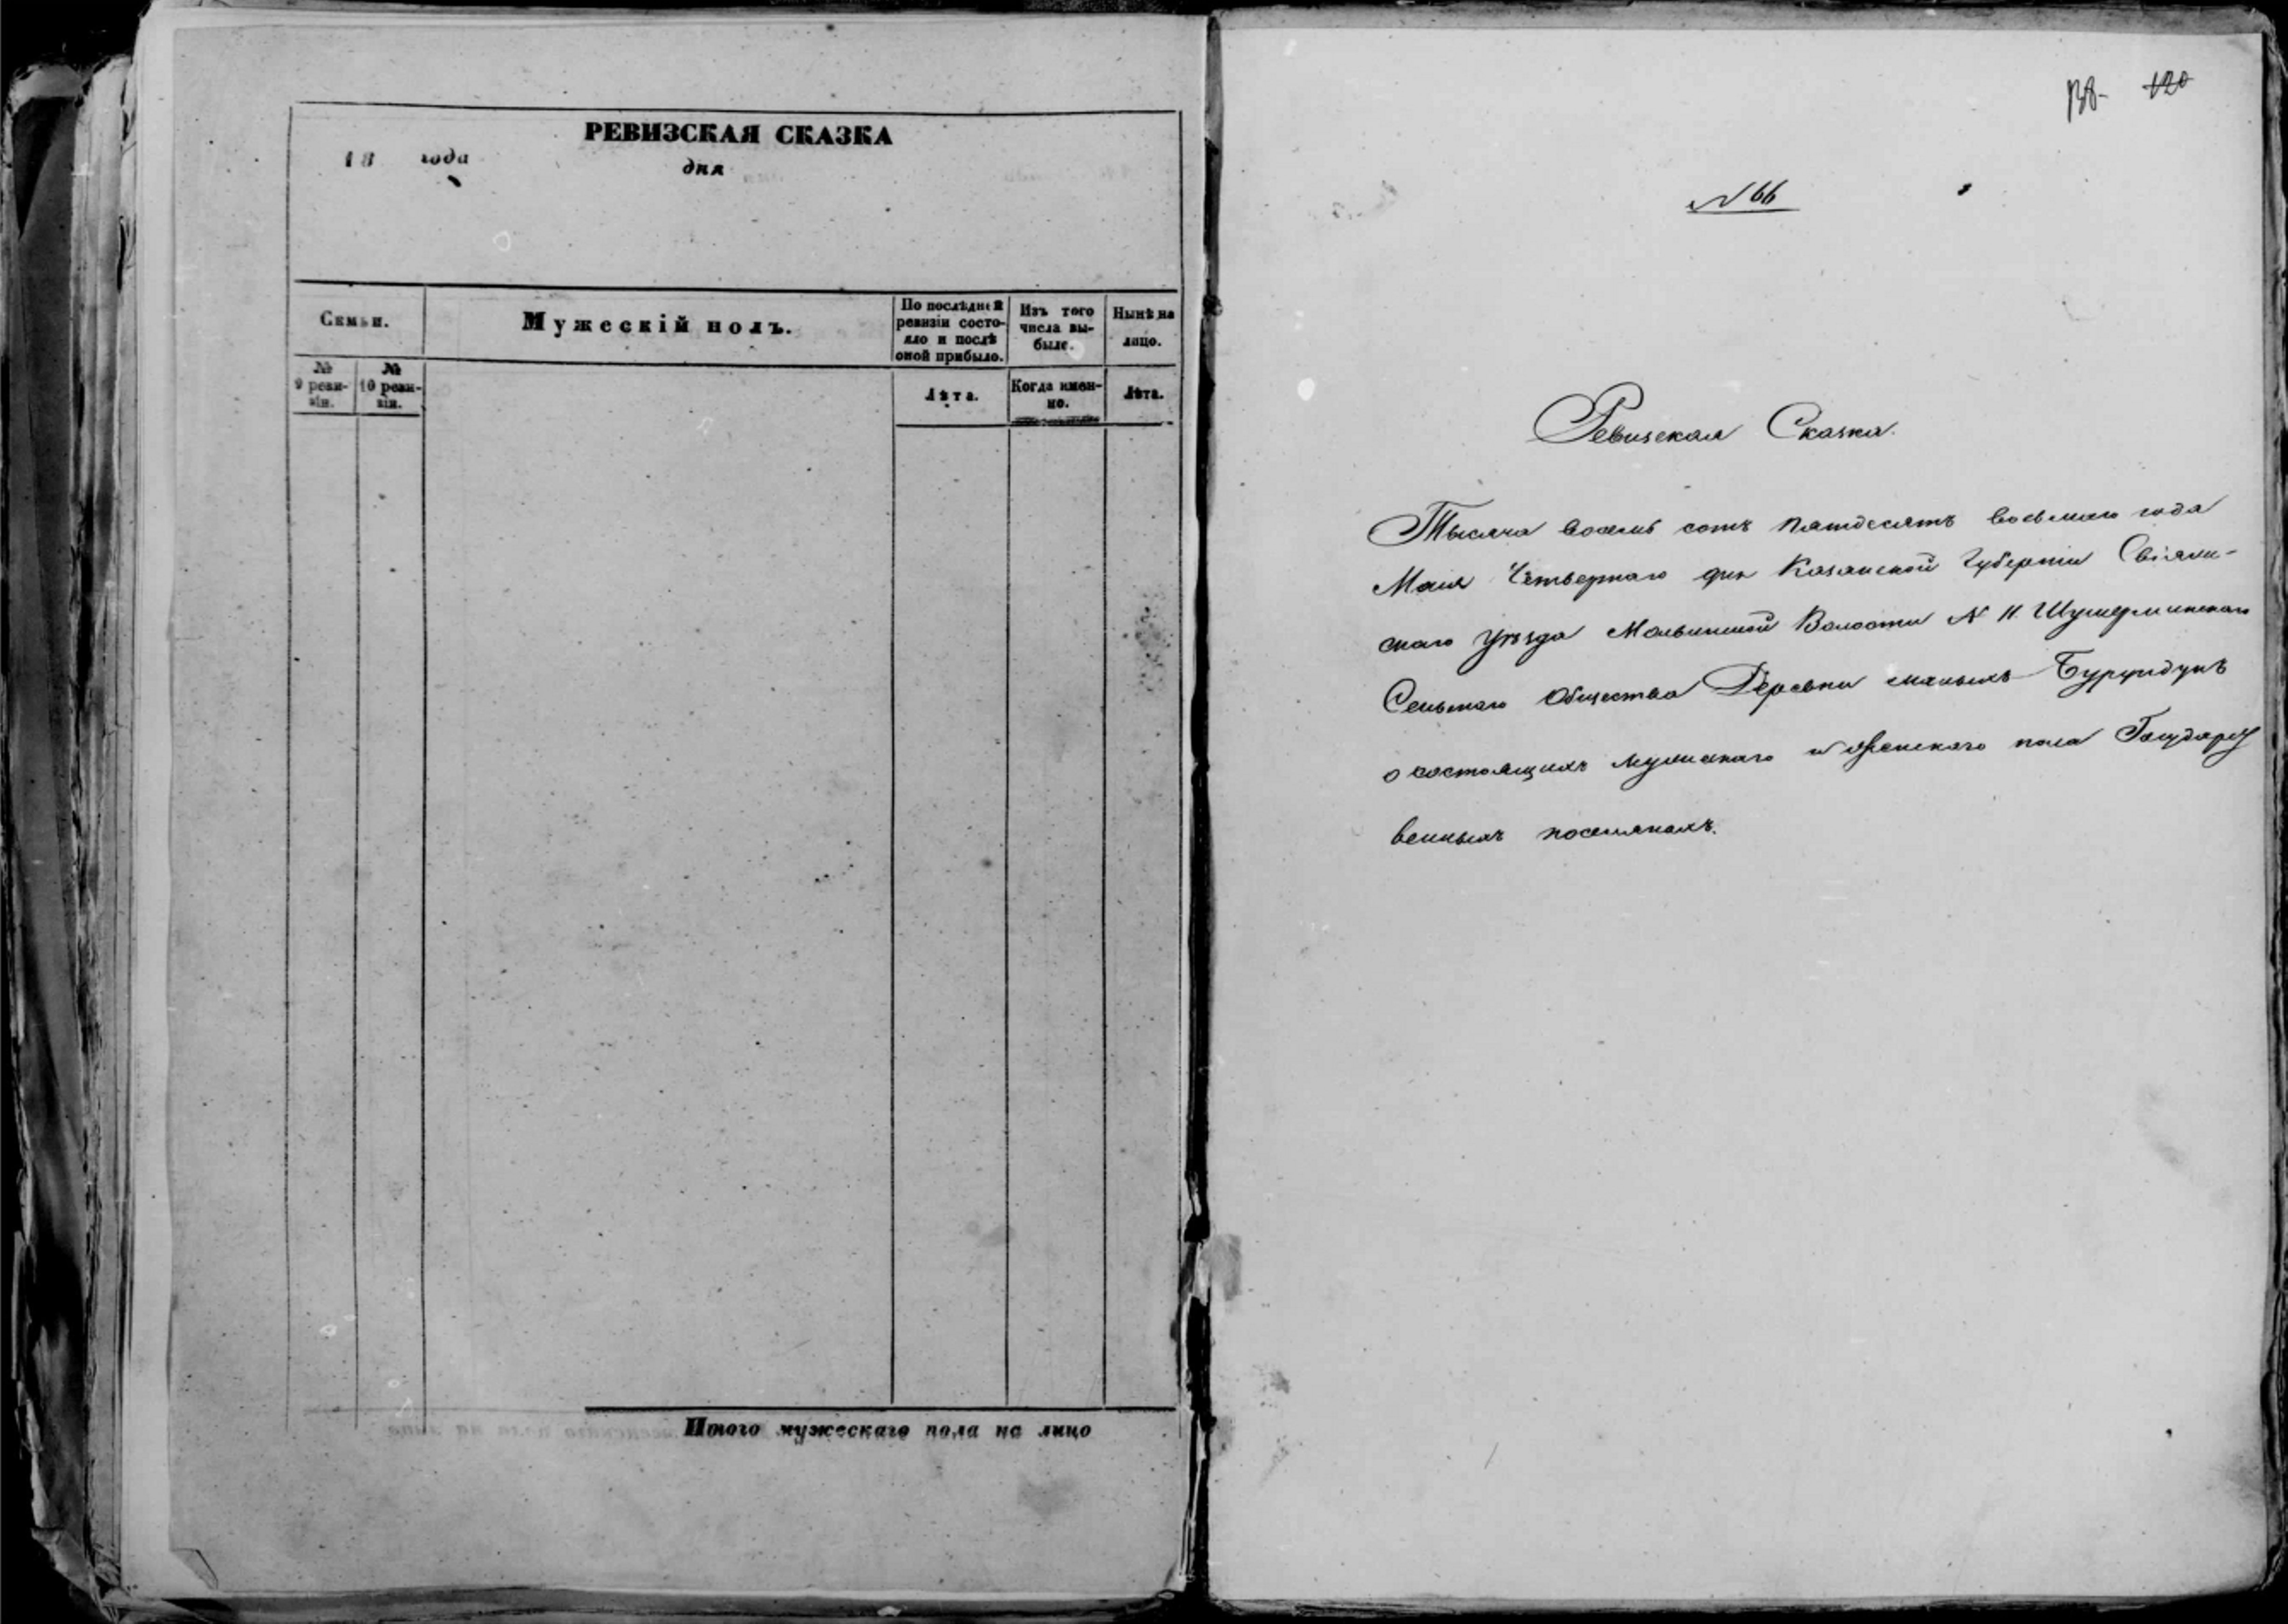 РЕВИЗСКАЯ СКАЗКА
18 года дня
Семьи.
Мужескій полъ.
По послѣдней ревизіи состояло и послѣ оной прибыло.
Изъ того числа выбыло.
Нынѣ на лицо.
№ 9 ревизіи.
№ 10 ревизіи.
Лѣта.
Когда именно.
Лѣта.
Итого мужескаго пола на лицо
138 120
N 66
Ревизская Сказка.
Тысяча восемь сотъ пятдесятъ восьмаго года
Маія Четвертаго дня Казанской Губерніи Свіяж-
скаго Уѣзда Волости N 11 Шушерминскаго
Сельскаго Общества Деревни малыхъ Бурундукъ
о состоящихъ мужескаго и женскаго пола Государст
венныхъ поселянахъ.